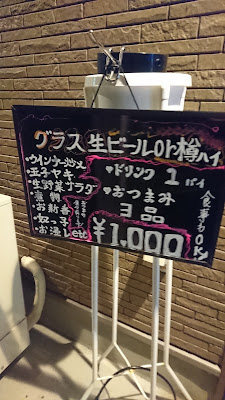 グラス生ビールor樽ハイ
・ウインナー炒メ
・玉子ヤキ
・生野菜サラダ
・煮物
・お新香
・奴・子
・お浸しetc
♥ドリンク1パイ
♥おつまみ
3品
¥1,000
食事もOK!